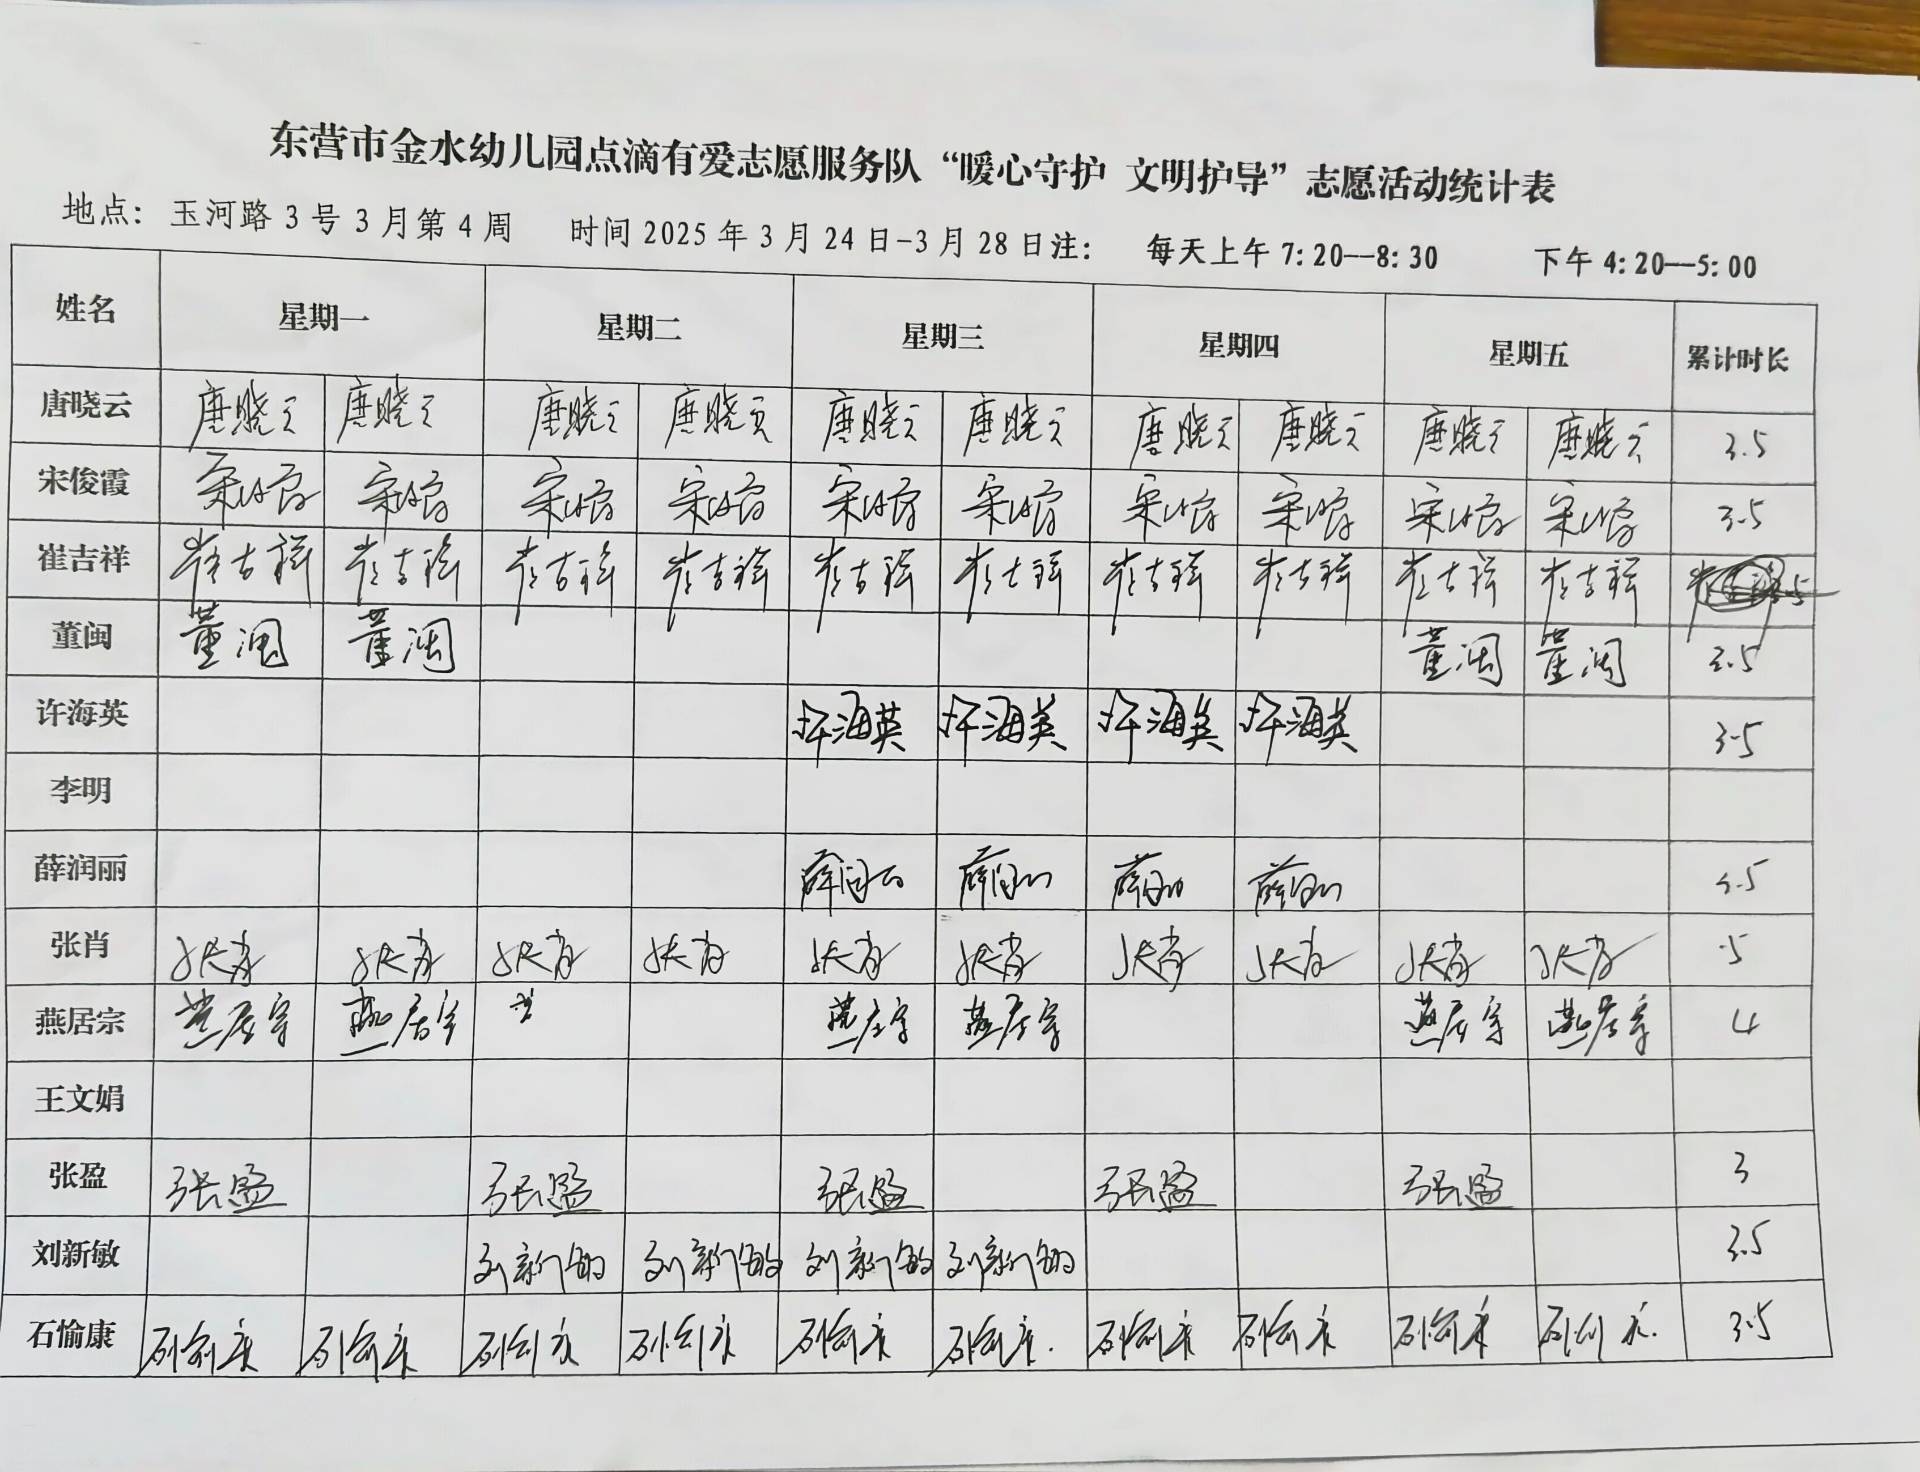 东营市金水幼儿园点滴有爱志愿服务队“暖心守护 文明护导”志愿活动统计表
地点: 玉河路3号3月第4周 时间2025年3月24日-3月28日注: 每天上午7:20--8:30 下午4:20--5:00
姓名 星期一 星期二 星期三 星期四 星期五 累计时长
唐晓云 唐晓云 唐晓云 唐晓云 唐晓云 唐晓云 唐晓云 唐晓云 唐晓云 唐晓云 唐晓云 3.5
宋俊霞 宋俊霞 宋俊霞 宋俊霞 宋俊霞 宋俊霞 宋俊霞 宋俊霞 宋俊霞 宋俊霞 宋俊霞 3.5
崔吉祥 崔吉祥 崔吉祥 崔吉祥 崔吉祥 崔吉祥 崔吉祥 崔吉祥 崔吉祥 崔吉祥 崔吉祥
董闽 董闽 董闽 董闽 董闽 3.5
许海英 许海英 许海英 许海英 许海英 3.5
李明
薛润丽 薛润丽 薛润丽 薛润丽 薛润丽
张肖 张肖 张肖 张肖 张肖 张肖 张肖 张肖 张肖 张肖 张肖 5
燕居宗 燕居宗 燕居宗 燕居宗 燕居宗 燕居宗 燕居宗 4
王文娟
张盈 张盈 张盈 张盈 张盈 张盈 3
刘新敏 刘新敏 刘新敏 刘新敏 刘新敏 3.5
石愉康 石愉康 石愉康 石愉康 石愉康 石愉康 石愉康 石愉康 石愉康 石愉康 石愉康 3.5